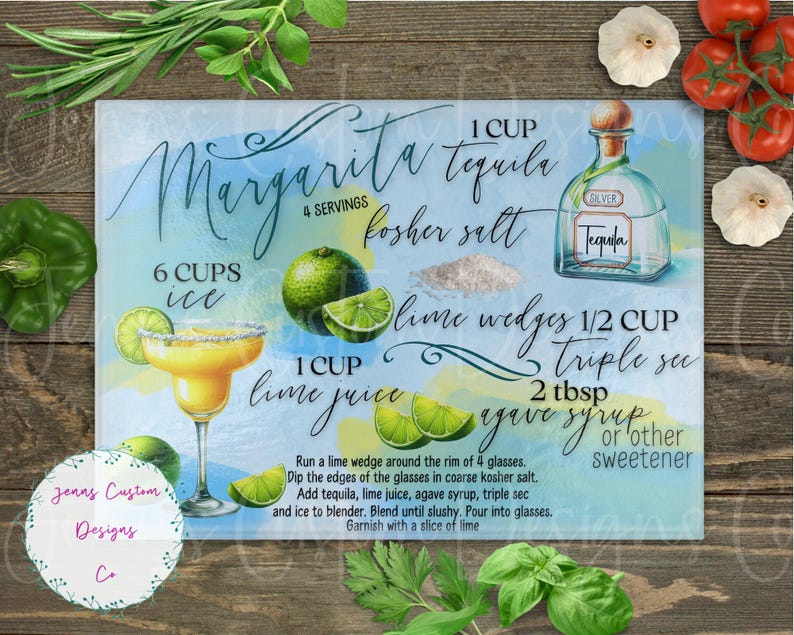 Margarita
4 SERVINGS
1 CUP
tequila
kosher salt
SILVER
Tequila
6 CUPS
ice
lime wedges
1/2 CUP
triple sec
1 CUP
lime juice
2 tbsp
agave syrup
or other
sweetener
Run a lime wedge around the rim of 4 glasses.
Dip the edges of the glasses in coarse kosher salt.
Add tequila, lime juice, agave syrup, triple sec
and ice to blender. Blend until slushy. Pour into glasses.
Garnish with a slice of lime
Jenns Custom
Designs
Co
Jenns Custom Designs Co